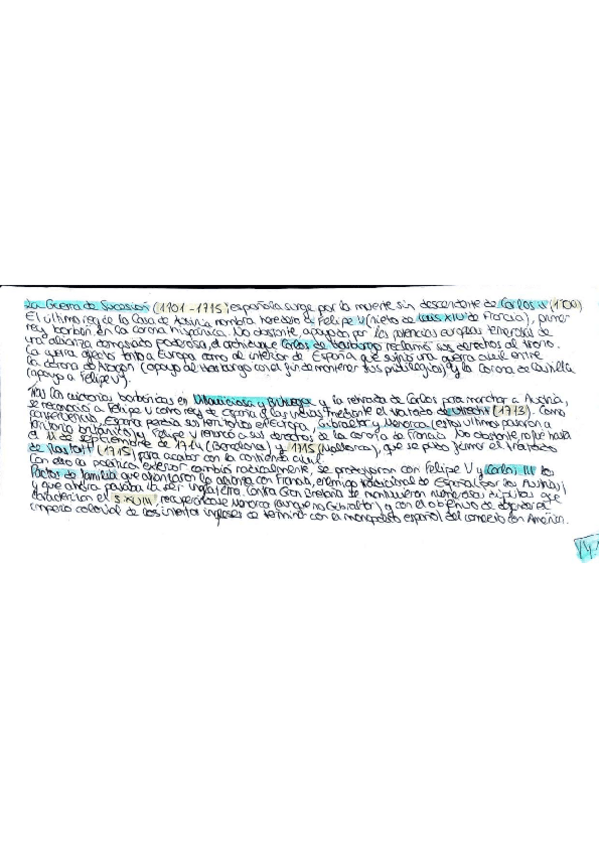 La Guerra de Sucesión (1701-1715) española surge por la muerte sin descendiente de Carlos II (1700)
El último rey de la Casa de Austria nombra heredero a Felipe V (nieto de Luis XIV de Francia), primer
rey borbón en la corona hispánica. No obstante, apoyado por las potencias europeas temerosas de
una alianza demasiado poderosa, el archiduque Carlos de Habsburgo reclamó sus derechos al trono.
La guerra afectó tanto a Europa como al interior de España que sufrió una guerra civil entre
la Corona de Aragón (apoyo al Habsburgo con el fin de mantener sus privilegios) y la Corona de Castilla
(apoyo a Felipe V).
Tras las victorias borbónicas en Villaviciosa y Brihuega y la retirada de Carlos para marchar a Austria,
se reconoció a Felipe V como rey de España e las Indias mediante el tratado de Utrecht (1713). Como
consecuencia, España perdía sus territorios en Europa, Gibraltar y Menorca (estos últimos pasaron a
territorio británico) y Felipe V renunció a sus derechos de la corona de Francia. No obstante, no fue hasta
el 11 de septiembre de 1714 (Barcelona) y 1715 (Mallorca), que se pudo firmar el tratado
de Rastatt (1715) para acabar con la contienda civil.
Con ello la política exterior cambió radicalmente, se produjeron con Felipe V y Carlos III los
Pactos de familia que afrontaron la alianza con Francia, enemigo tradicional de España (por los Austrias)
y que ahora pasaba a ser Inglaterra. Contra Gran Bretaña se mantuvieron numerosas disputas que
caracterizan el S.XVIII, recuperándose Menorca (aunque no Gibraltar) y con el objetivo de defender el
imperio colonial de los intentos ingleses de terminar con el monopolio español del comercio con América.